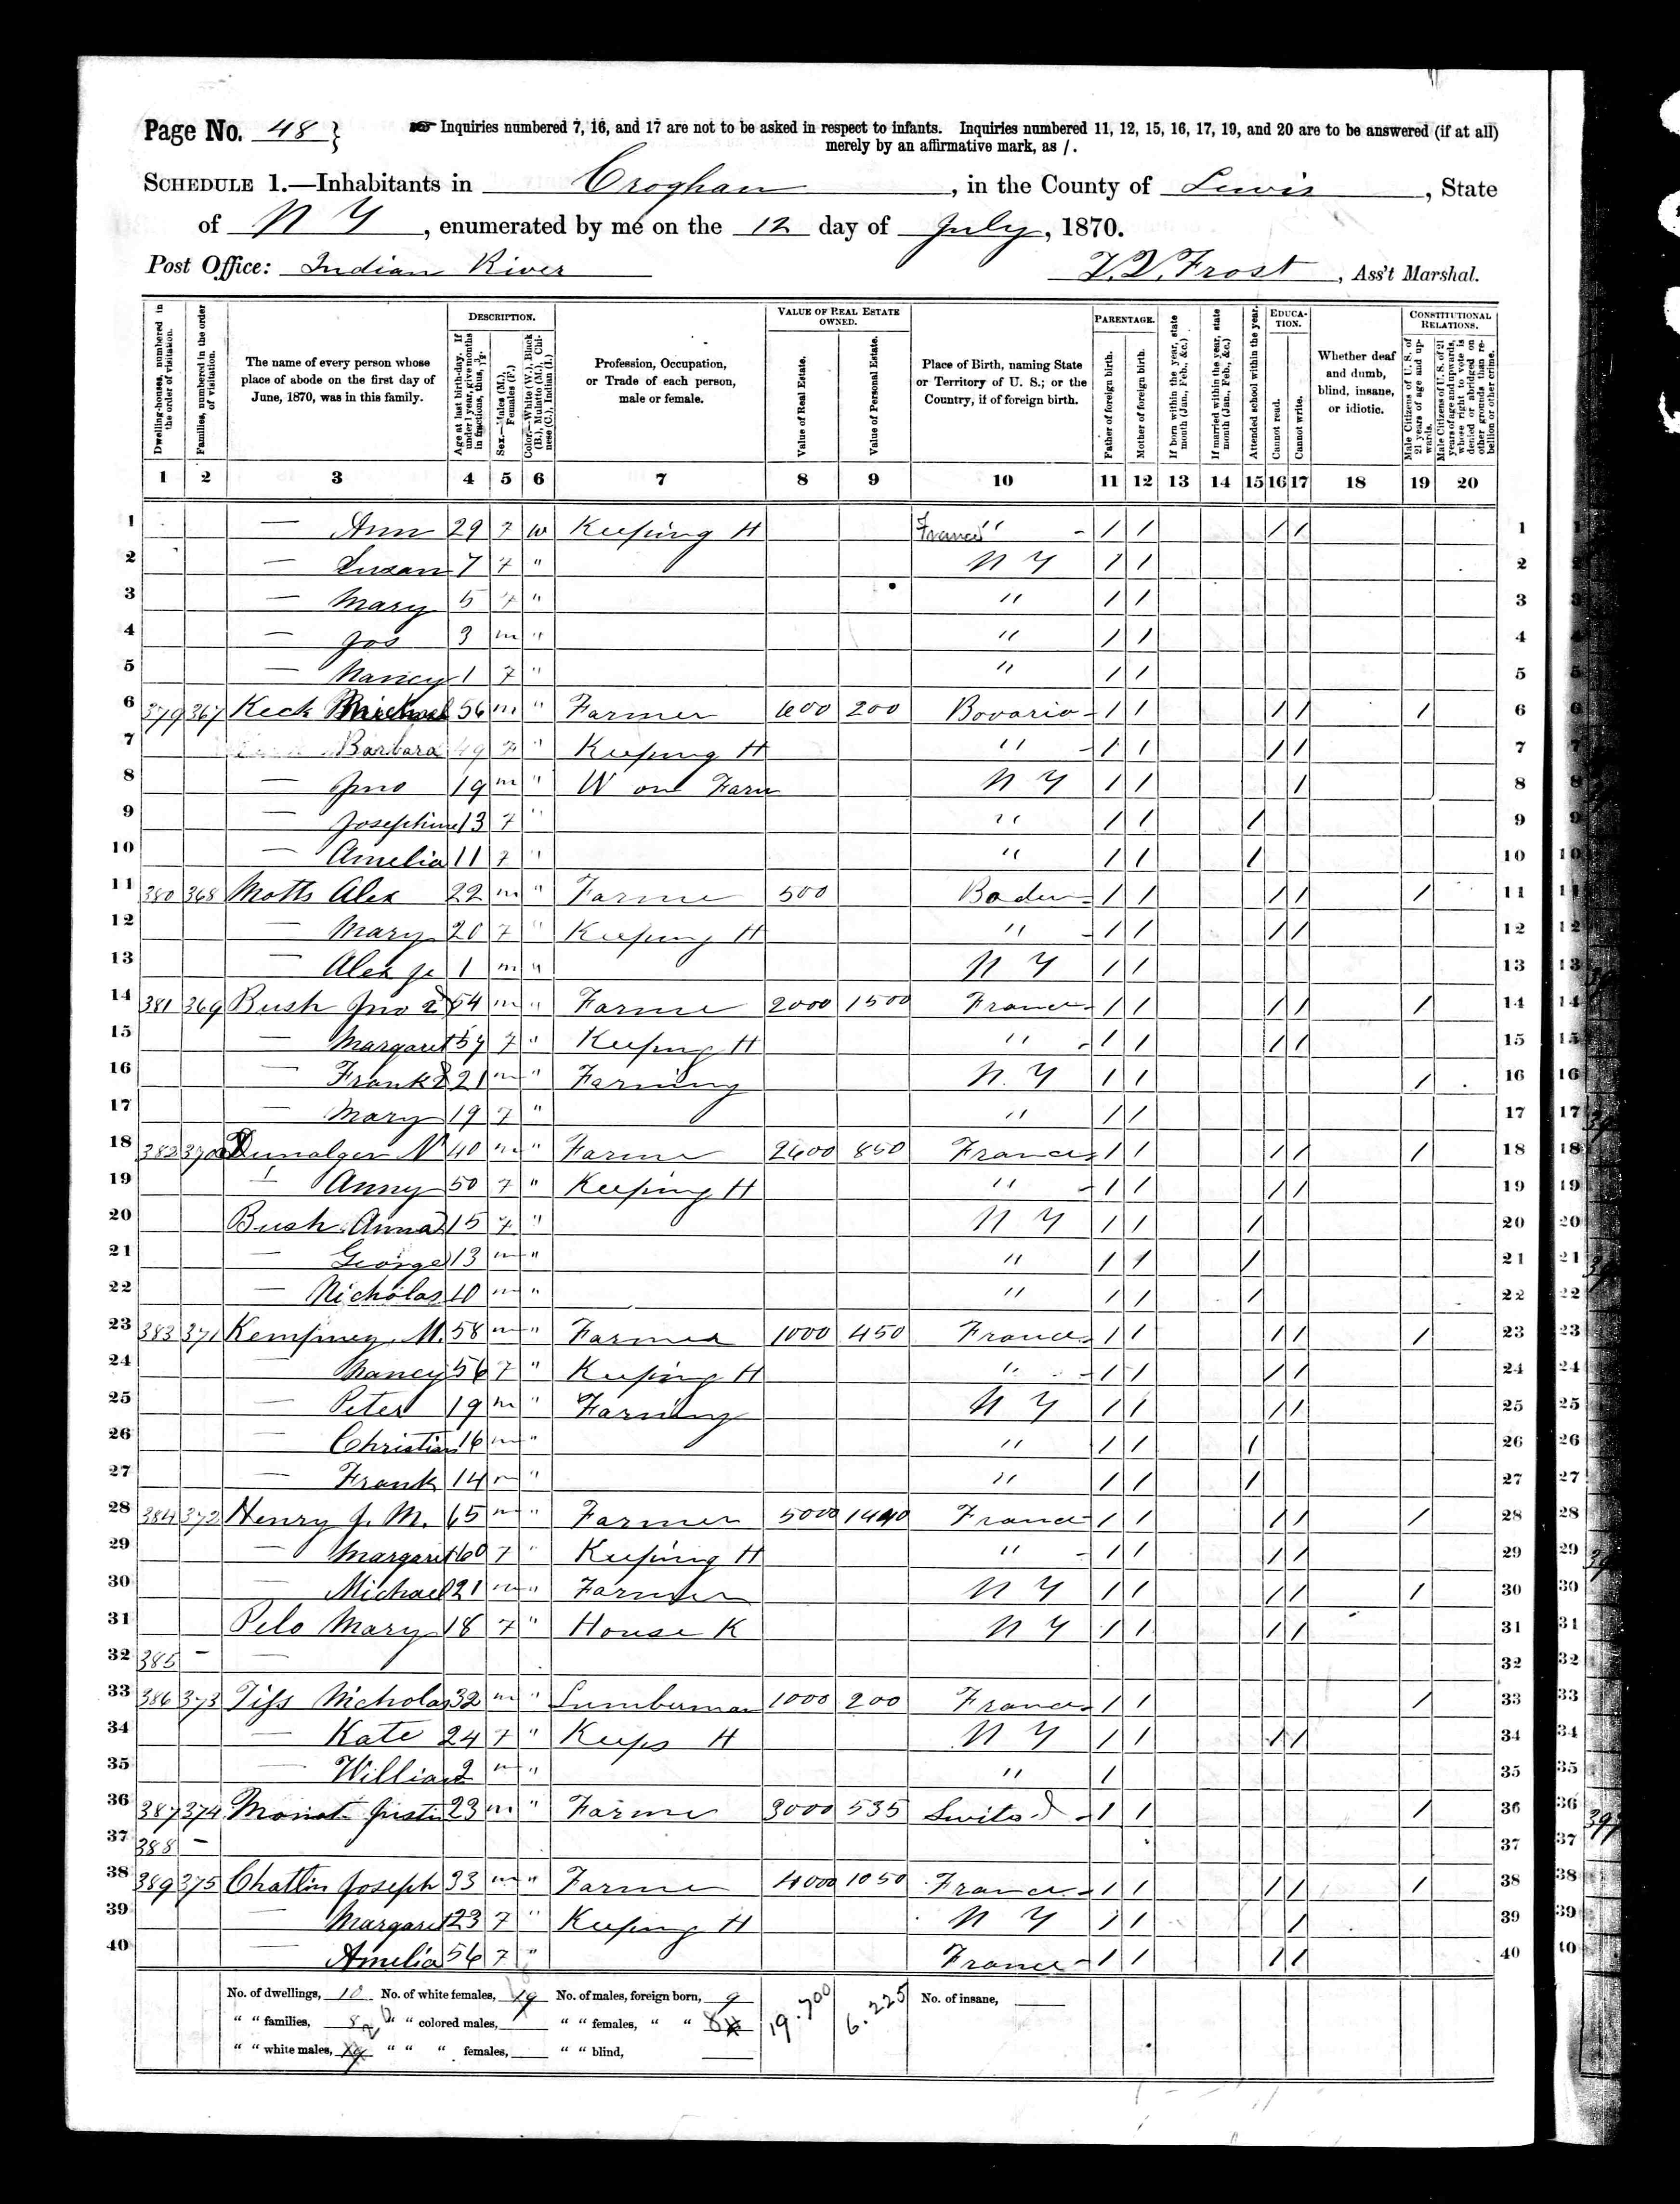 Page No. 48
Inquiries numbered 7, 16, and 17 are not to be asked in respect to infants. Inquiries numbered 11, 12, 15, 16, 17, 19, and 20 are to be answered (if at all)
merely by an affirmative mark, as /.
SCHEDULE 1.—Inhabitants in Croghan, in the County of Lewis, State
of N Y, enumerated by me on the 12 day of July, 1870.
Post Office: Indian River
Frost, Ass't Marshal.
Dwelling-houses, numbered in the order of visitation.
Families, numbered in the order of visitation.
The name of every person whose place of abode on the first day of June, 1870, was in this family.
DESCRIPTION.
Age at last birth-day. If under 1 year, give months in fractions, thus, 3/12.
Sex.—Males (M.), Females (F.)
Color.—White (W.), Black (B.), Mulatto (M.), Chinese (C.), Indian (I.)
Profession, Occupation, or Trade of each person, male or female.
VALUE OF REAL ESTATE OWNED.
Value of Real Estate.
Value of Personal Estate.
Place of Birth, naming State or Territory of U. S.; or the Country, if of foreign birth.
PARENTAGE.
Father of foreign birth.
Mother of foreign birth.
If born within the year, state month (Jan., Feb., &c.)
If married within the year, state month (Jan., Feb., &c.)
Attended school within the year.
EDUCATION.
Cannot read.
Cannot write.
Whether deaf and dumb, blind, insane, or idiotic.
CONSTITUTIONAL RELATIONS.
Male Citizens of U. S. of 21 years of age and upwards.
Male Citizens of U. S. of 21 years of age and upwards, whose right to vote is denied or abridged on other grounds than rebellion or other crime.
1 2 3 4 5 6 7 8 9 10 11 12 13 14 15 16 17 18 19 20
1 — Ann 29 F W Keeping H France " / / / / 1
2 — Susan 7 F " N Y / / 2
3 — Mary 5 F " " / / 3
4 — Jos 3 m " " / / 4
5 — Nancy 1 F " " / / 5
6 379 367 Keck Michael 56 m " Farmer 600 200 Bovario / / / / / 6
7 Barbara 49 F " Keeping H " / / / / 7
8 — Jno 19 m " W on Farm N Y / / / 8
9 — Josephine 13 F " " / / / 9
10 — Amelia 11 F " " / / / 10
11 380 368 Motts Alex 22 m " Farme 500 Baden / / / / / 11
12 — Mary 20 F " Keeping H " / / / / 12
13 — Alex Jr 1 m " N Y / / 13
14 381 369 Bush Jno 2d 54 m " Farme 2000 1500 France / / / / / 14
15 — Margaret 57 F " Keeping H " / / / / 15
16 — Frank 21 m " Farming N. Y / / / 16
17 — Mary 19 F " " / / 17
18 382 370 N 40 m " Farme 2600 850 France / / / / / 18
19 — Anny 50 F " Keeping H " / / / / 19
20 Bush Anna 15 F " N Y / / / 20
21 — George 13 m " " / / / 21
22 — Nicholas 10 m " " / / / 22
23 383 371 Kempney M. 58 m " Farmer 1000 450 France / / / / / 23
24 — Nancy 56 F " Keeping H " / / / / 24
25 — Peter 19 m " Farming N Y / / / / 25
26 — Christian 16 m " " / / / 26
27 — Frank 14 m " " / / / 27
28 384 372 Henry J. M. 65 m " Farmer 5000 1440 France / / / / / 28
29 — Margaret 60 F " Keeping H " / / / / 29
30 — Michael 21 m " Farmer N Y / / / / / 30
31 Pelo Mary 18 F " House K N Y / / / / 31
32 385 – — 32
33 386 373 Tiss Nicholas 32 m " Lumberman 1000 200 France / / / 33
34 — Kate 24 F " Keeps H N Y / / / / 34
35 — William 2 m " " / 35
36 387 374 Monat Justin 23 m " Farme 3000 535 Switzd / / / 36
37 388 – 37
38 389 375 Chatlin Joseph 33 m " Farme 4000 1050 France / / / / / 38
39 — Margaret 23 F " Keeping H N Y / / / 39
40 — Amelia 56 F " France / / / / 40
No. of dwellings, 10 No. of white females, 19 No. of males, foreign born, 9 19.700 6.225 No. of insane,
" " families, 8 " " colored males, " " females, " " 8
" " white males, 19 " " " females, " " blind,